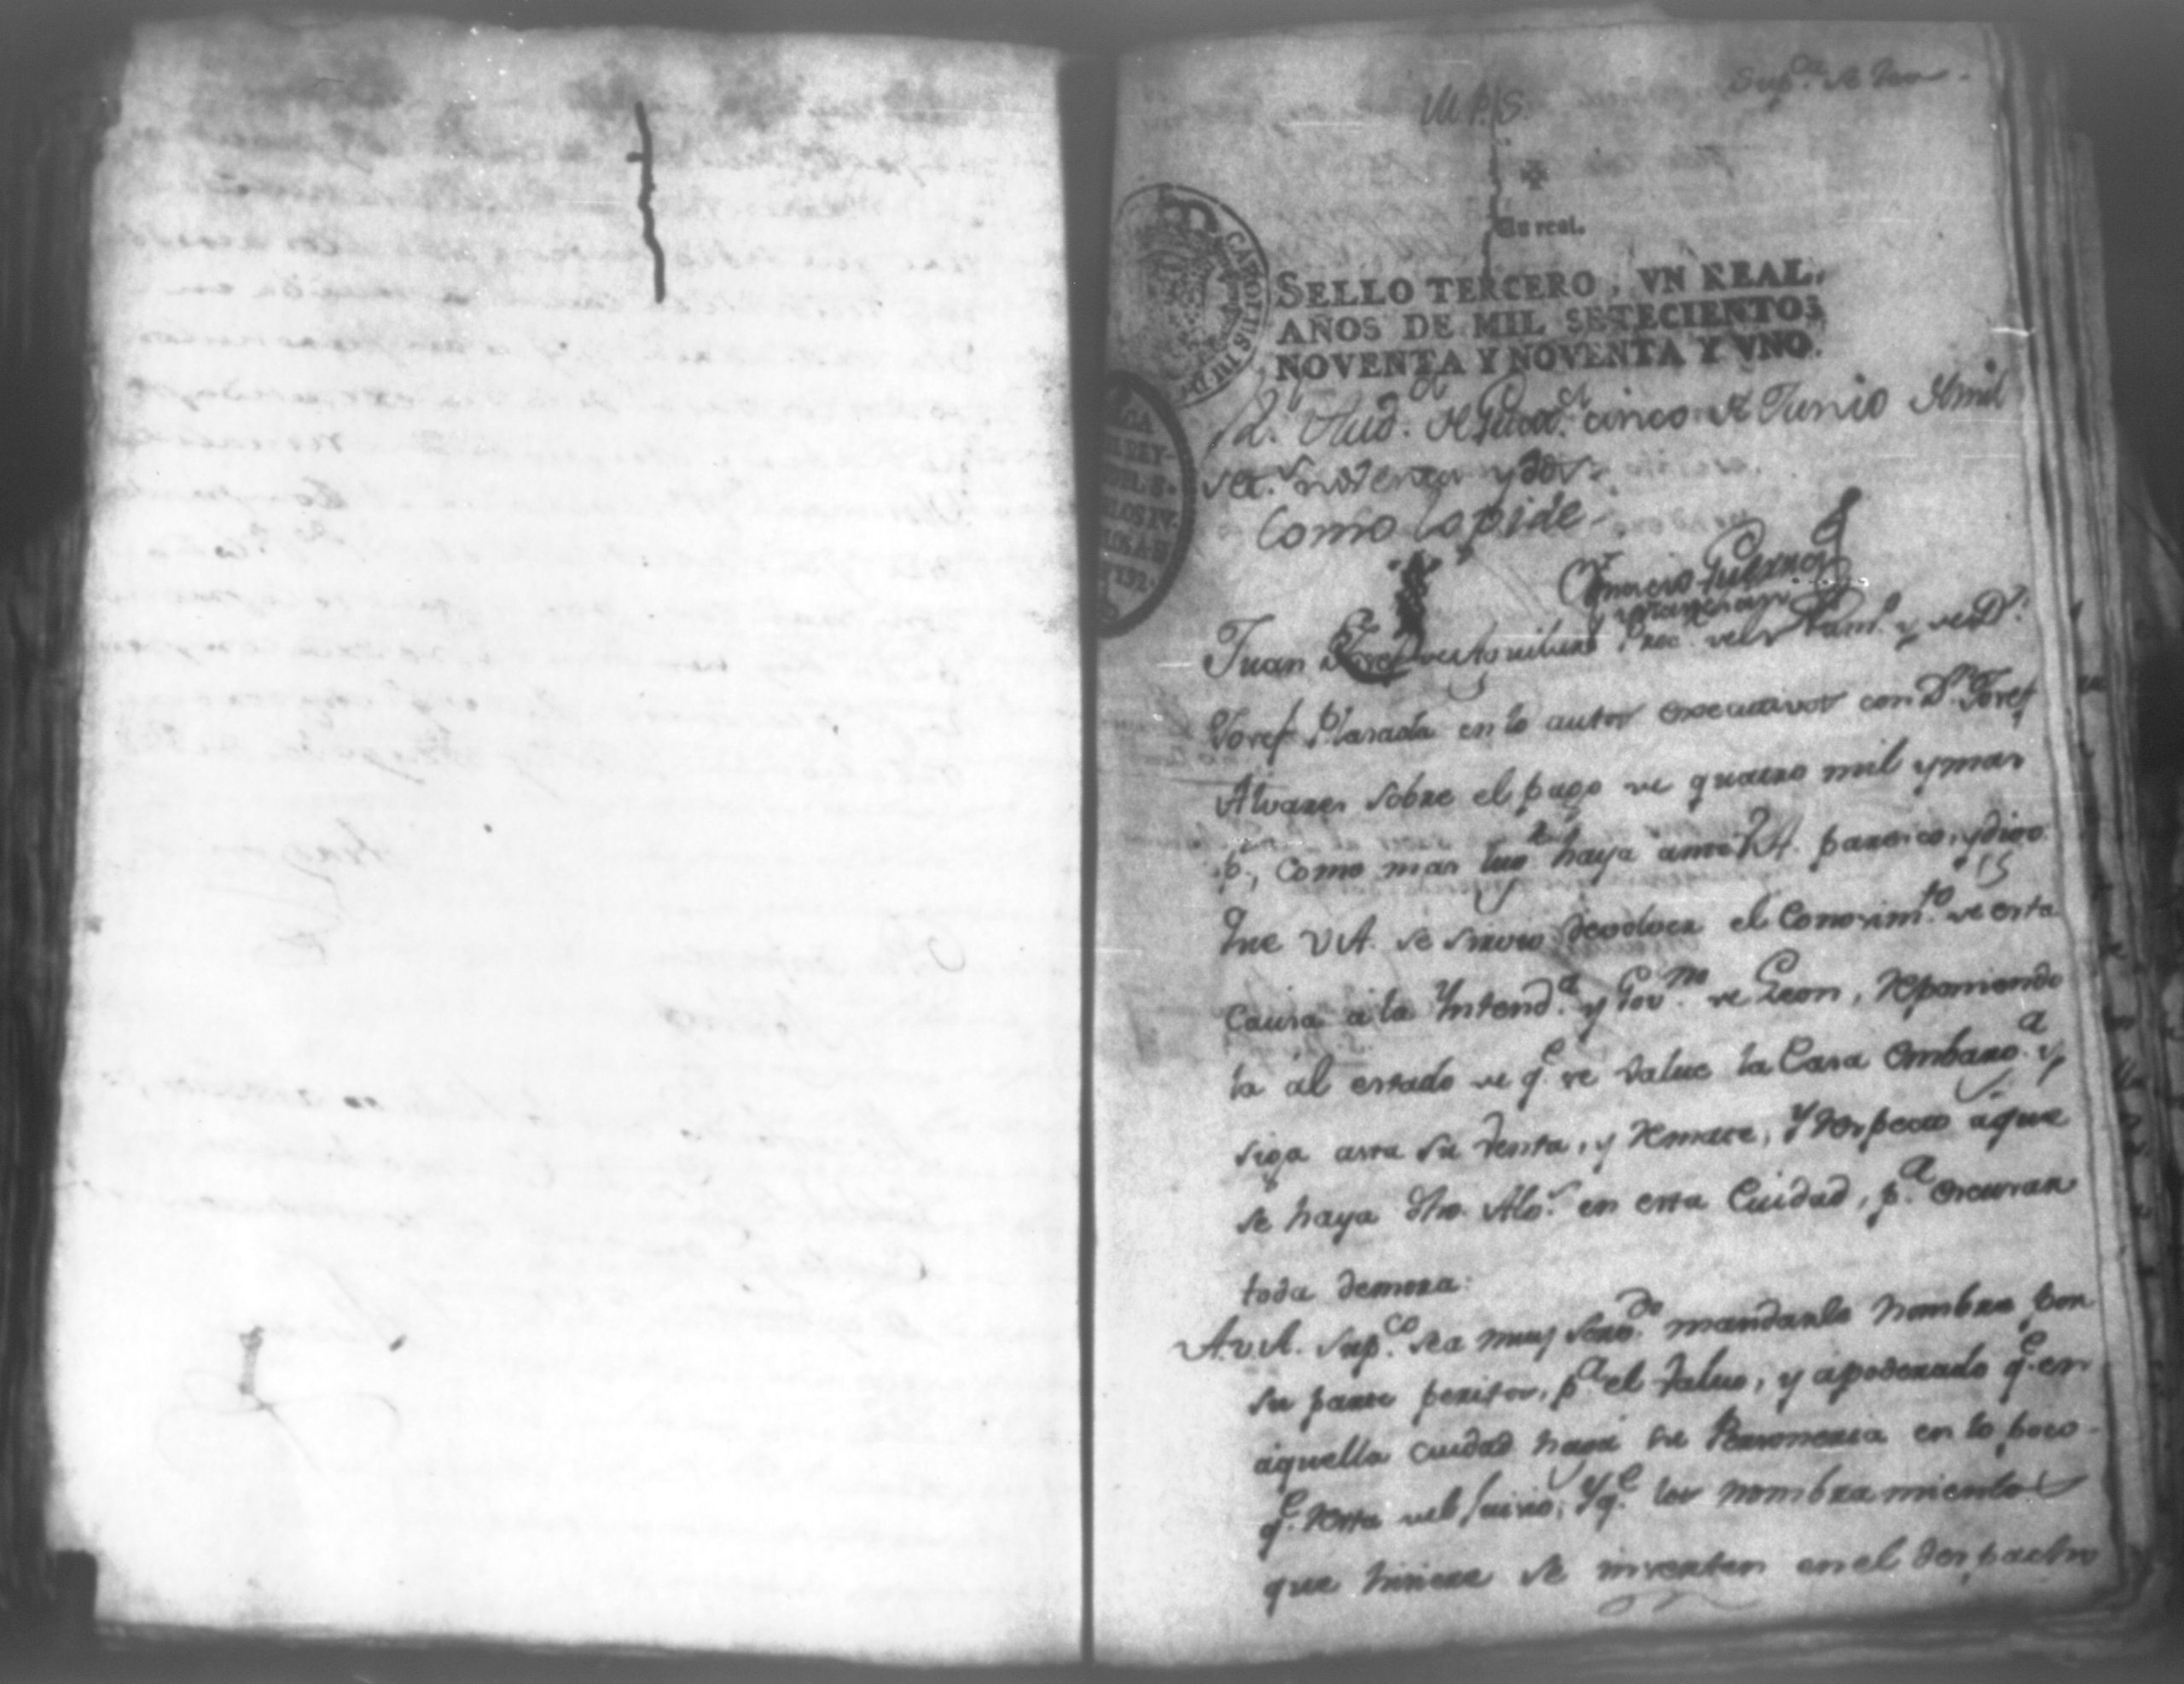 M. P. S.
Un real.
SELLO TERCERO, VN REAL,
AÑOS DE MIL SETECIENTOS
NOVENTA Y NOVENTA Y VNO.
Rl. Audª. de Guatª. cinco de Junio de mil
setˢ. noventa y dos.
Como lo pide
Juan Josef de Aguilar Proc. del Num.º y de Dⁿ.
Josef Plasada en lo autos executivos con Dⁿ. Josef
Alvares sobre el pago de quatro mil y mas
p.ˢ, como mas lug.ʳ haya ante V.A. paresco, y digo:
Que V.A. se sirvio devolver el Conosim.ᵗᵒ de esta
causa a la Yntend.ª y Gov.ⁿᵒ de Leon, reponiendo
la al estado de q.ᵉ se value la Casa embarg.ª y
siga asta su venta, y remate, Y respecto á que
se haya dho. Alv.ˢ en esta Ciudad, p.ª escusar
toda demora:
A V.A. sup.ᶜᵒ sea muy serv.ᵈᵒ mandarle nombre por
su parte peritos, p.ª el valuo, y apoderado q.ᵉ en
aquella ciudad haga su Personeria en lo poco
q.ᵉ resta del Juicio, Y q.ᵉ los nombramientos
que hiciere se inserten en el despacho